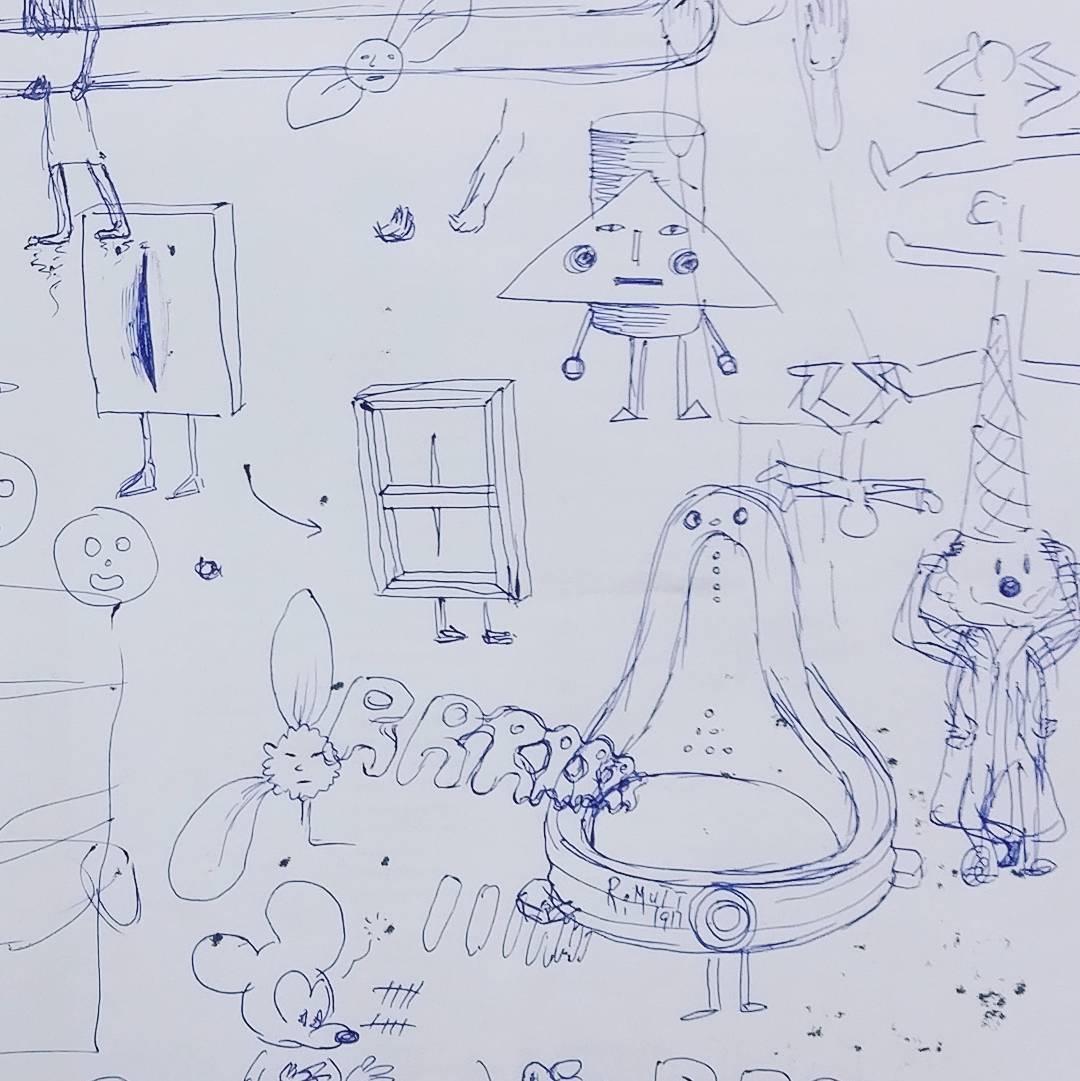 RRRRRR
R. MuTT
1917